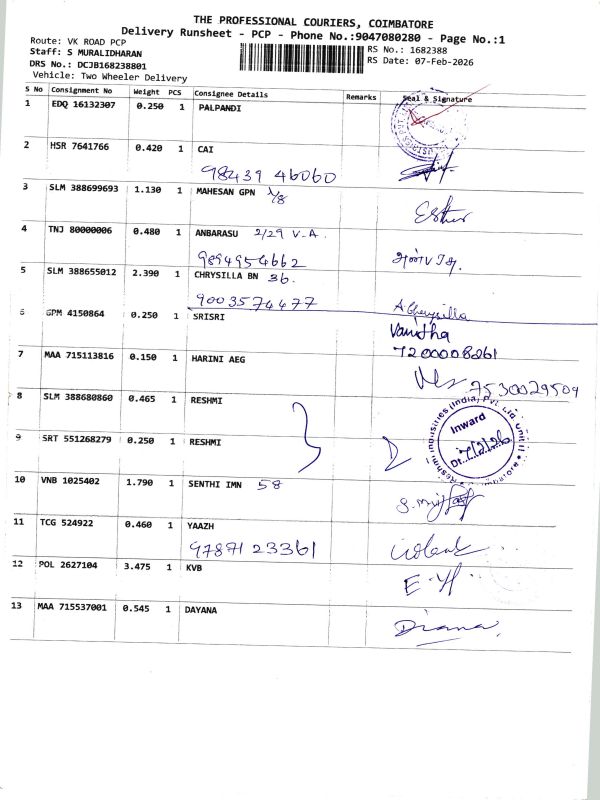 THE PROFESSIONAL COURIERS, COIMBATORE
Delivery Runsheet - PCP - Phone No.:9047080280 - Page No.:1
Route: VK ROAD PCP
Staff: S MURALIDHARAN
DRS No.: DCJB168238801
Vehicle: Two Wheeler Delivery
RS No.: 1682388
RS Date: 07-Feb-2026
S No Consignment No Weight PCS Consignee Details Remarks Seal & Signature
1 EDQ 16132307 0.250 1 PALPANDI
2 HSR 7641766 0.420 1 CAI
98439 46060
3 SLM 388699693 1.130 1 MAHESAN GPN 1/8
Esther
4 TNJ 80000006 0.480 1 ANBARASU 2/29 V.A.
9894954662
5 SLM 388655012 2.390 1 CHRYSILLA BN 36.
9003574477
A Chrysilla
6 GPM 4150864 0.250 1 SRISRI
Vanitha
7200008261
7 MAA 715113816 0.150 1 HARINI AEG
7530029509
8 SLM 388680860 0.465 1 RESHMI
9 SRT 551268279 0.250 1 RESHMI
Reshmi Industries (India) Pvt. Ltd. Unit II
Inward
Dt. 7/2/26
10 VNB 1025402 1.790 1 SENTHI IMN 58
11 TCG 524922 0.460 1 YAAZH
97871 23361
12 POL 2627104 3.475 1 KVB
13 MAA 715537001 0.545 1 DAYANA
Diana